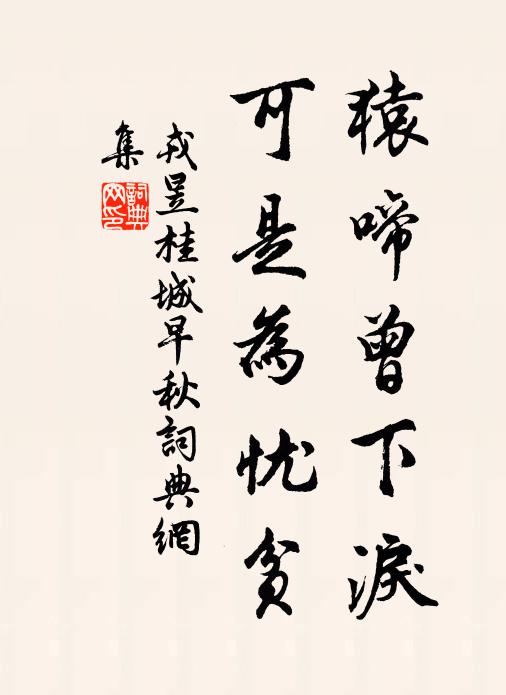 猿啼曾下淚
可是為忧貧
戎昱桂城早秋詞典網
集
詞典
网印